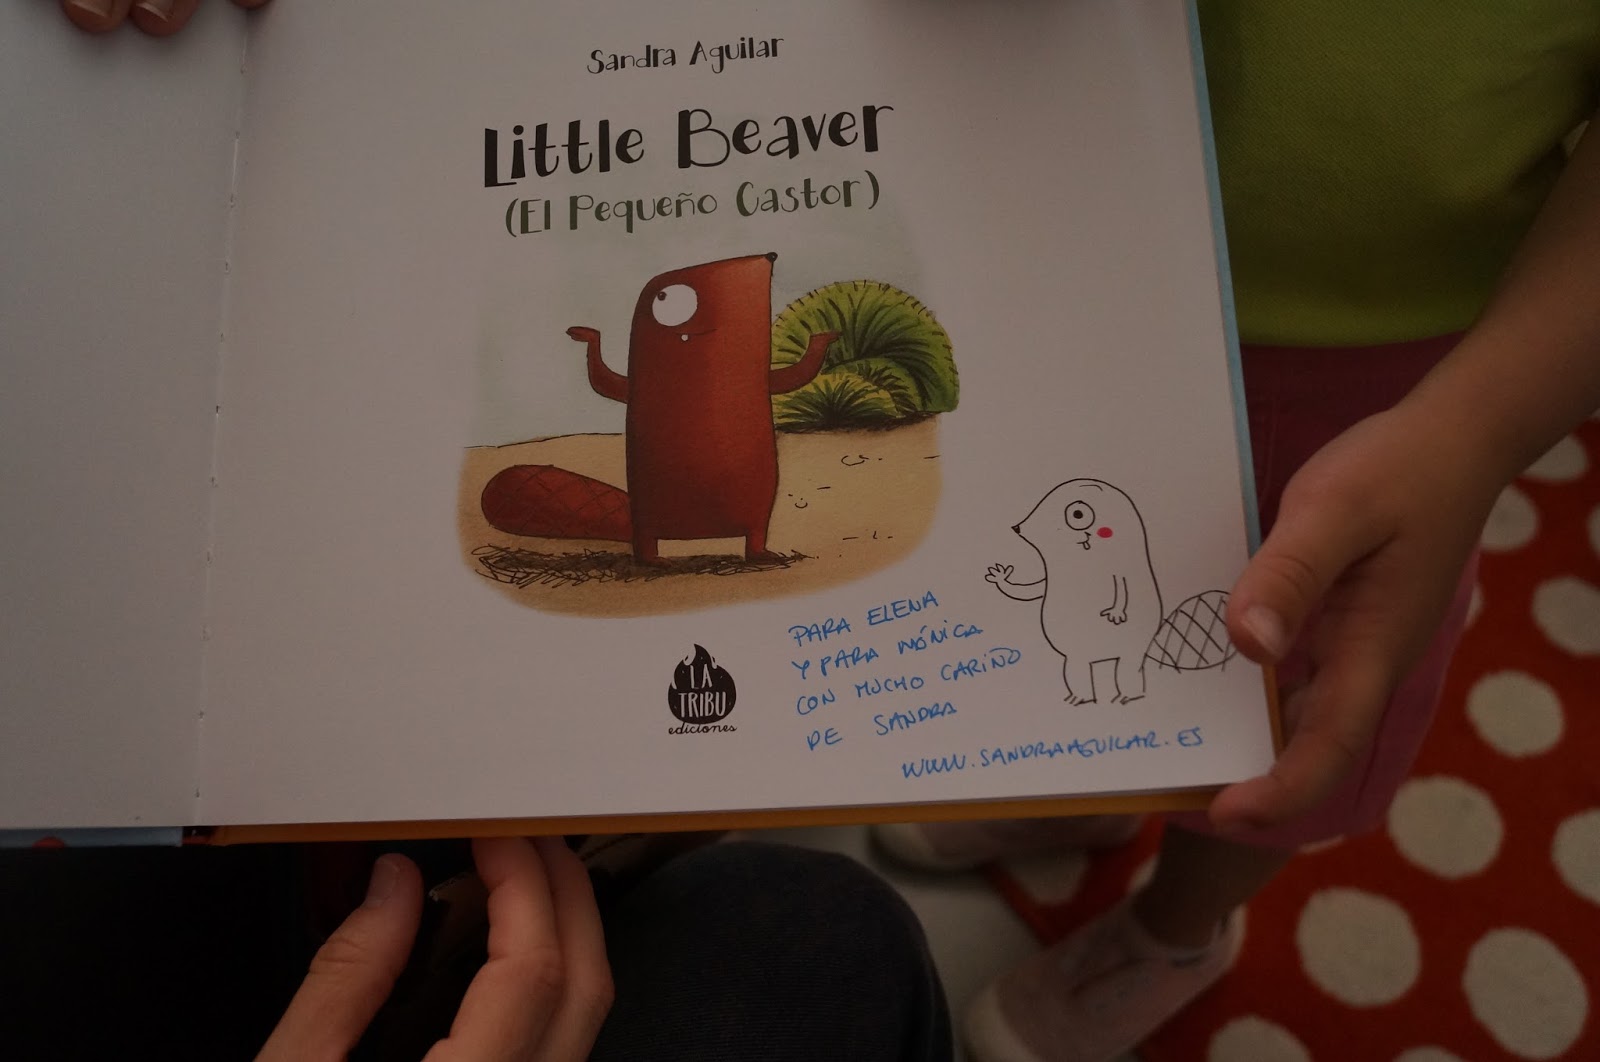 Sandra Aguilar
Little Beaver
(El Pequeño Castor)
LA
TRIBU
ediciones
PARA ELENA
Y PARA MÓNICA
CON MUCHO CARIÑO
DE SANDRA
WWW.SANDRAAGUILAR.ES